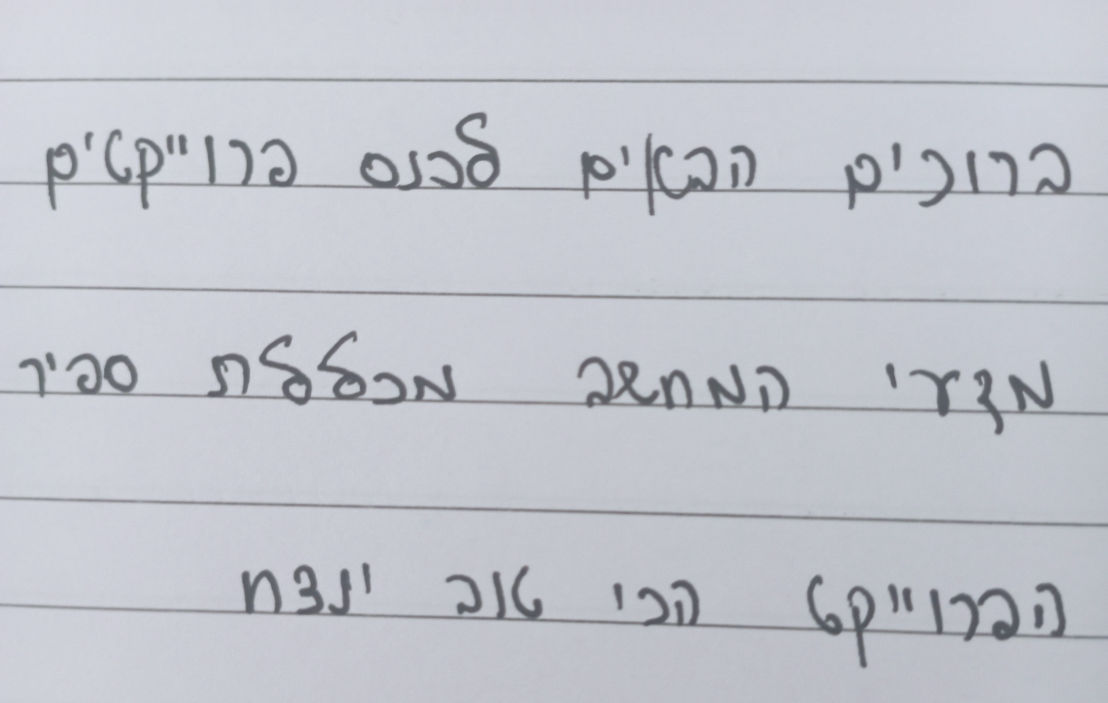 ברוכים הבאים לכנס פרוייקטים
מדעי המחשב מכללת ספיר
הפרוייקט הכי טוב ינצח